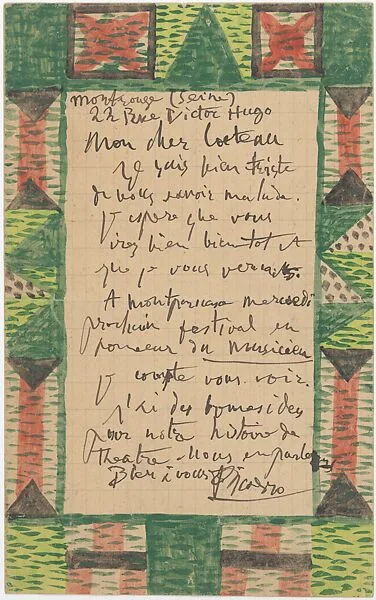 Montrouge (Seine)
22 Rue Victor Hugo
Mon cher Cocteau
Je suis bien triste
de vous savoir malade.
J'espere que vous
irez bien bientot et
que je vous verrai.
A Montparnasse mercredi
prochain festival en
honneur du Musicien
je compte vous voir.
J'ai des bonnes idees
pour notre histoire de
theatre. Nous en parlerons
Bien à vous Picasso